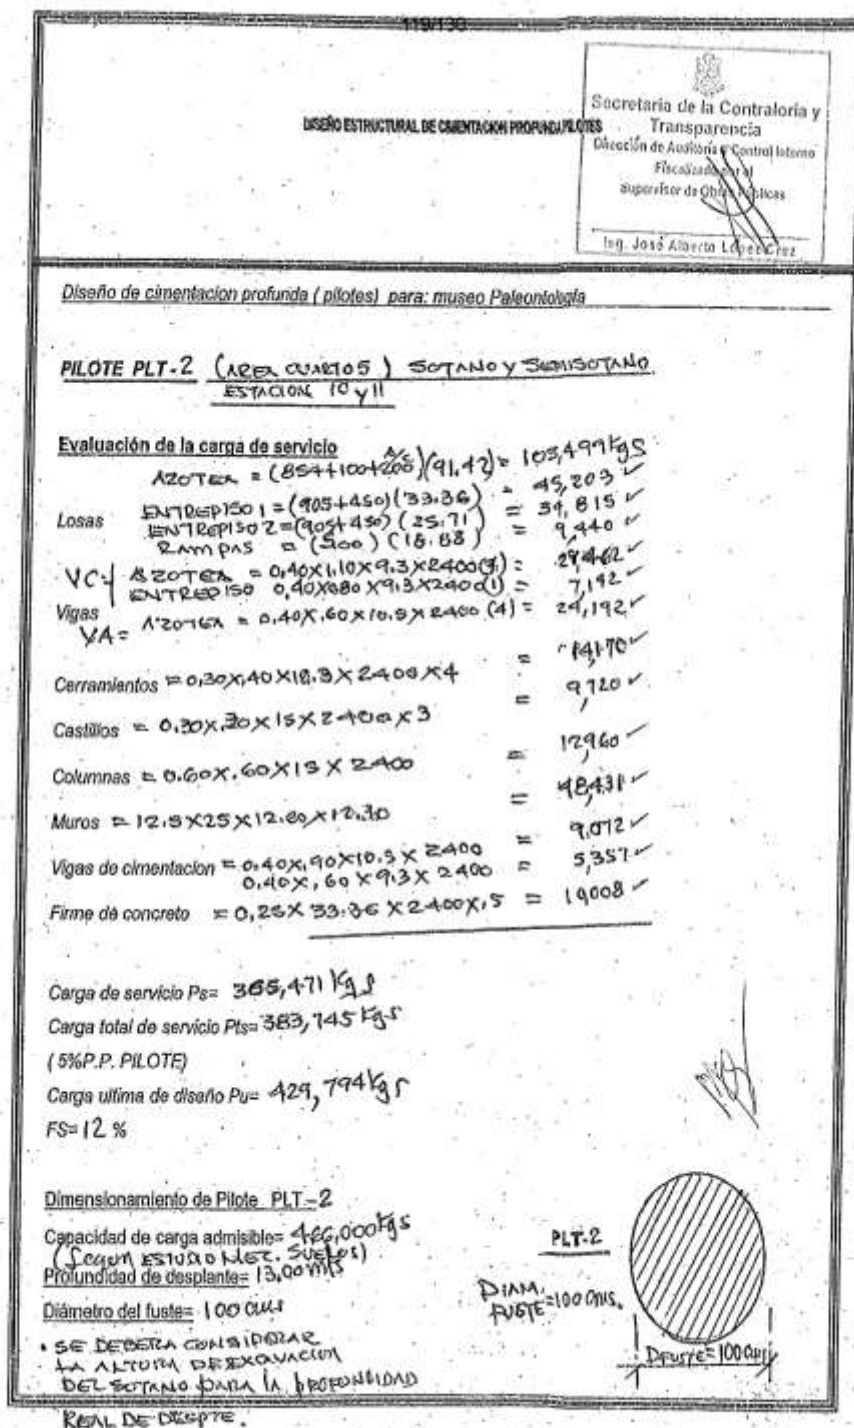 119/130
DISEÑO ESTRUCTURAL DE CIMENTACION PROFUNDA PILOTES
Secretaría de la Contraloría y
Transparencia
Dirección de Auditoría y Control Interno
Fiscalizado por el
Supervisor de Obras Públicas
Ing. José Alberto López Cruz
Diseño de cimentacion profunda ( pilotes) para: museo Paleontologia
PILOTE PLT-2 (AREA CUARTOS) SOTANO Y SEMISOTANO
ESTACION 10 y 11
Evaluación de la carga de servicio
AZOTEA = (854+100+200)(91.42) = 105,499 Kgs
ENTREPISO 1 = (905+450)(33.36) = 45,203 ✓
Losas
ENTREPISO 2 = (905+450)(25.71) = 34,815 ✓
RAMPAS = (500)(18.88) = 9,440 ✓
VC AZOTEA = 0,40X1,10X9.3X2400 = 29,462 ✓
ENTREPISO 0,40X080X9.3X2400(1) = 7,192 ✓
Vigas
VA= AZOTEA = 0,40X.60X10.5X2400 (4) = 24,192 ✓
Cerramientos = 0,30X,40X12.3X2400X4 = 14,170 ✓
Castillos = 0.30X.30X15X2400X3 = 9,720 ✓
Columnas = 0.60X.60X15X2400 = 12,960 ✓
Muros = 12.5X25X12.60X12.30 = 48,431 ✓
Vigas de cimentacion = 0.40X,90X10.5X2400 = 9,072 ✓
0.40X,60X9.3X2400 = 5,357 ✓
Firme de concreto = 0,25X33.36X2400X,5 = 19,008 ✓
Carga de servicio Ps= 365,471 Kgs
Carga total de servicio Pts= 383,745 Kgs
(5%P.P. PILOTE)
Carga ultima de diseño Pu= 429,794 Kgs
FS= 12 %
Dimensionamiento de Pilote PLT-2
Capacidad de carga admisible= 466,000 Kgs
(SEGUN ESTUDIO MEC. SUELOS)
Profundidad de desplante= 13,00 mts
Diámetro del fuste= 100 cms
• SE DEBERA CONSIDERAR
LA ALTURA DE EXCAVACION
DEL SOTANO PARA LA PROFUNDIDAD
REAL DE DESPTE.
PLT-2
DIAM.
FUSTE=100 cms.
DFUSTE=100 cms